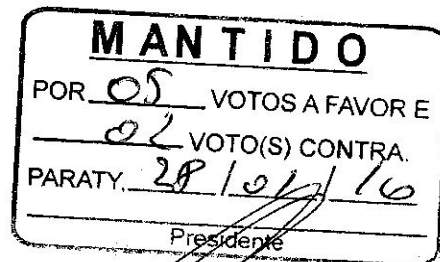 MANTIDO
POR 05 VOTOS A FAVOR E
02 VOTO(S) CONTRA.
PARATY, 28 / 01 / 16
Presidente